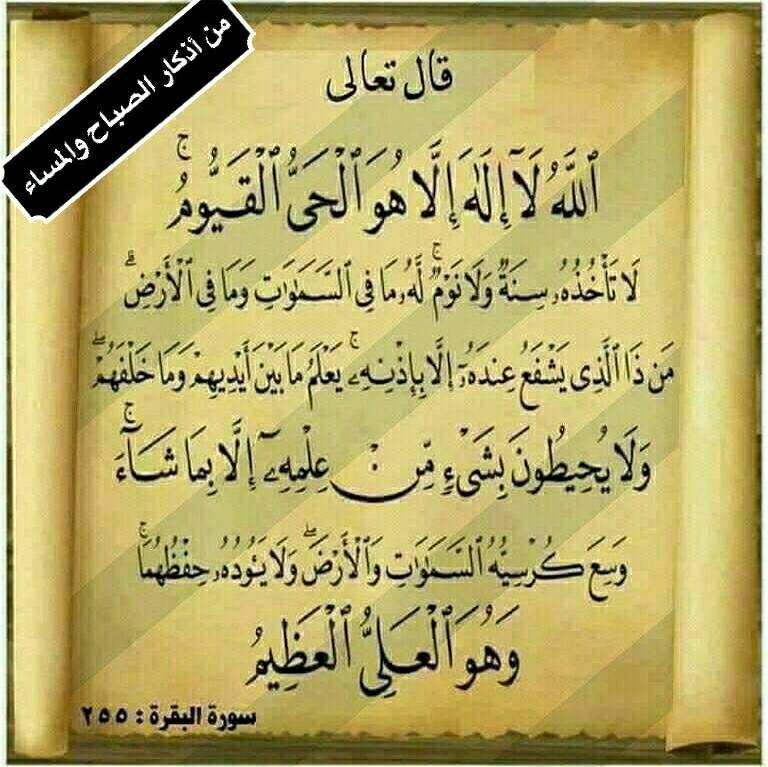 من أذكار الصباح والمساء
قال تعالى
ٱللَّهُ لَآ إِلَٰهَ إِلَّا هُوَ ٱلْحَىُّ ٱلْقَيُّومُ ۚ
لَا تَأْخُذُهُۥ سِنَةٌ وَلَا نَوْمٌ ۚ لَّهُۥ مَا فِى ٱلسَّمَٰوَٰتِ وَمَا فِى ٱلْأَرْضِ ۗ
مَن ذَا ٱلَّذِى يَشْفَعُ عِندَهُۥٓ إِلَّا بِإِذْنِهِۦ ۚ يَعْلَمُ مَا بَيْنَ أَيْدِيهِمْ وَمَا خَلْفَهُمْ ۖ
وَلَا يُحِيطُونَ بِشَىْءٍ مِّنْ عِلْمِهِۦٓ إِلَّا بِمَا شَآءَ ۚ
وَسِعَ كُرْسِيُّهُ ٱلسَّمَٰوَٰتِ وَٱلْأَرْضَ ۖ وَلَا يَـُٔودُهُۥ حِفْظُهُمَا ۚ
وَهُوَ ٱلْعَلِىُّ ٱلْعَظِيمُ
سورة البقرة : ٢٥٥